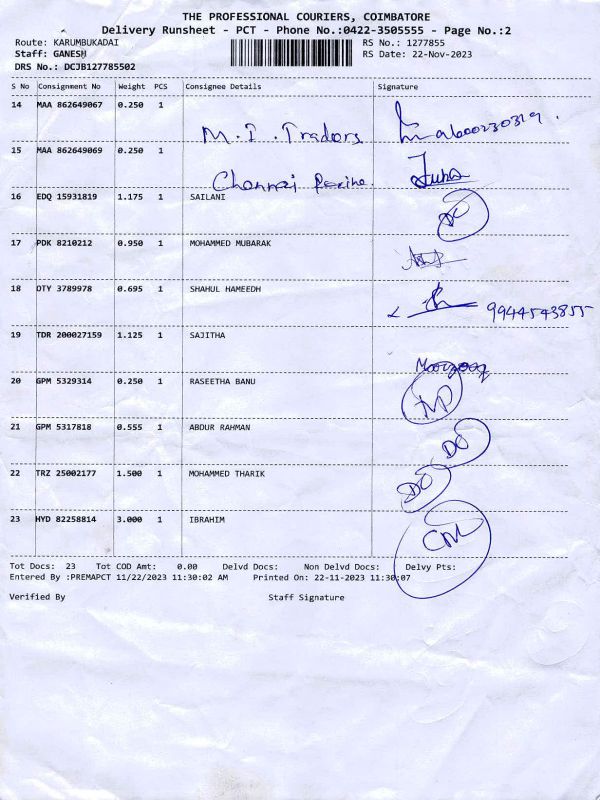 THE PROFESSIONAL COURIERS, COIMBATORE
Delivery Runsheet - PCT - Phone No.:0422-3505555 - Page No.:2
Route: KARUMBUKADAI RS No.: 1277855
Staff: GANESH RS Date: 22-Nov-2023
DRS No.: DCJB127785502
S No Consignment No Weight PCS Consignee Details Signature
14 MAA 862649067 0.250 1
M.I. Traders
15 MAA 862649069 0.250 1
Chennai
16 EDQ 15931819 1.175 1 SAILANI DC
17 PDK 8210212 0.950 1 MOHAMMED MUBARAK
18 OTY 3789978 0.695 1 SHAHUL HAMEEDH
9944543855
19 TDR 200027159 1.125 1 SAJITHA
20 GPM 5329314 0.250 1 RASEETHA BANU
21 GPM 5317818 0.555 1 ABDUR RAHMAN DC
22 TRZ 25002177 1.500 1 MOHAMMED THARIK DC
23 HYD 82258814 3.000 1 IBRAHIM
Tot Docs: 23 Tot COD Amt: 0.00 Delvd Docs: Non Delvd Docs: Delvy Pts:
Entered By :PREMAPCT 11/22/2023 11:30:02 AM Printed On: 22-11-2023 11:30:07
Verified By Staff Signature